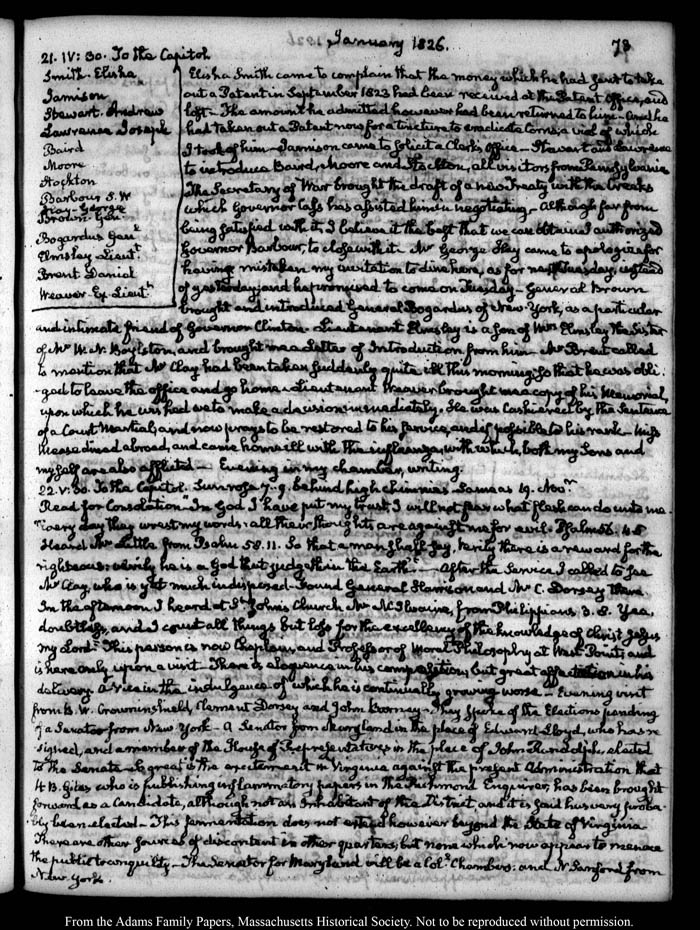 January 1826.
73
21. IV: 30. To the Capitol
Smith. Elisha
Jamison
Stewart. Andrew
Lawrence Joseph
Baird
Moore
Stockton
Barbour J. W
Hay. George
Brown. Genl
Bogardus Genl
Elmsley Lieutt
Brent Daniel
Weaver Ex Lieutt
Elisha Smith came to complain that the money which he had sent to take
out a Patent in September 1823 had been received at the Patent Office, and
lost— The amount he admitted however had been returned to him— And he
had taken out a Patent now for a tincture to eradicate Corns; a vial of which
I took of him— Jamison came to solicit a Clerk's Office— Stewart and Lawrence
to introduce Baird, Moore and Stockton, all visitors from Pennsylvania
The Secretary of War brought the draft of a new Treaty with the Creeks
which Governor Cass has assisted him in negotiating— Although far from
being satisfied with it, I believe it the best that we can obtain and authorized
Governor Barbour, to close with it— Mr George Hay came to apologize for
having mistaken my invitation to dine here, as for next Tuesday, instead
of yesterday; and he promised to come on Tuesday— General Brown
brought and introduced General Bogardus of New-York, as a particular
and intimate friend of Governor Clinton— Lieutenant Elmsley is a son of Mrs Elmsley the Sister
of Mr W. N. Boylston, and brought me a Letter of Introduction from him— Mr Brent called
to mention that Mr Clay had been taken suddenly quite ill this morning; so that he was obli-
-ged to leave the office and go home— Lieutenant Weaver brought me a copy of his Memorial,
upon which he wished me to make a decision immediately. He was cashiered by the Sentence
of a Court Martial, and now prays to be restored to his service, and if possible to his rank— 
dined abroad, and came home ill with the influenza, with which, both my Sons and
myself are also afflicted— Evening in my chamber, writing.
22. V: 30. To the Capitol. Sun rose 7–9. behind high chimnies Same as 19. Nov.
Read for Consolation "In God I have put my trust, I will not fear what flesh can do unto me.
"Every day they wrest my words: all their thoughts are against me for evil. Psalm 56. 4.5
Heard Mr Little from Psalm 58. 11. So that a man shall say, Verily there is a reward for the
righteous: verily he is a God that judgeth in the Earth"— After the Service I called to see
Mr Clay, who is yet much indisposed— Found General Harrison and Mr C. Dorsey there
In the afternoon I heard at St John's Church Mr McIlvaine, from Philippians 3. 8. Yea,
doubtless, and I count all things but loss for the excellency of the knowledge of Christ Jesus
my Lord— This person is now Chaplain and Professor of Moral Philosophy at West-Point, and
is here only upon a visit— There is eloquence in his composition, but great affectation in his
delivery. A vice in the indulgence of which he is continually growing worse— Evening visit
from B. W. Crowninshield, Clement Dorsey and John Barney— They spoke of the Elections pending
of a Senator from New York— A Senator from Maryland in the place of Edward Lloyd, who has re-
signed, and a member of the House of Representatives in the place of John Randolph, elected
to the Senate— So great is the excitement in Virginia against the present Administration that
W B. Giles who is publishing inflammatory papers in the Richmond Enquirer, has been brought
forward as a Candidate, although not an Inhabitant of the District and it is said has very proba-
bly been elected— This fermentation does not extend however beyond the State of Virginia
There are other sources of discontent in other quarters, but none which now appear to menace
the public tranquility— The Senator for Maryland will be a Col. Chambers: and N. Sanford from
New York.
From the Adams Family Papers, Massachusetts Historical Society. Not to be reproduced without permission.